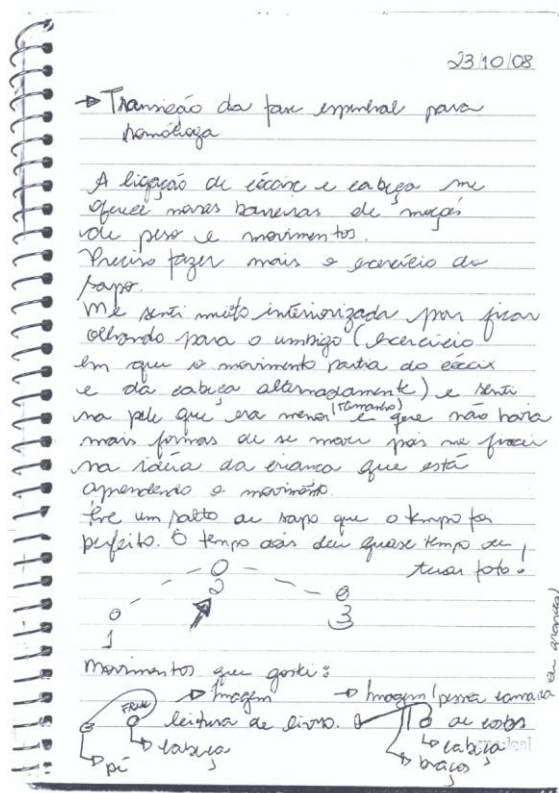 23/10/08
→ Transição da fase espinhal para
homóloga
A ligação de cóccix e cabeça me
oferece novas de
de peso e movimentos.
Preciso fazer mais o exercício do
sapo.
Me senti muito interiorizada por ficar
olhando para o umbigo (exercício
em que o movimento partia do cóccix
e da cabeça alternadamente) e senti
na pele que era menor (tamanho) e que não havia
mais formas de se mover pois me
na idéia da criança que está
aprendendo o movimento.
Teve um salto de sapo que o tempo foi
perfeito. O tempo deu quase tempo de
tirar foto!
1 2 3
Movimentos que gostei:
→ Imagem → Imagem (pessoa
leitura de livros. de costas
→ cabeça → cabeça
→ pé → braços